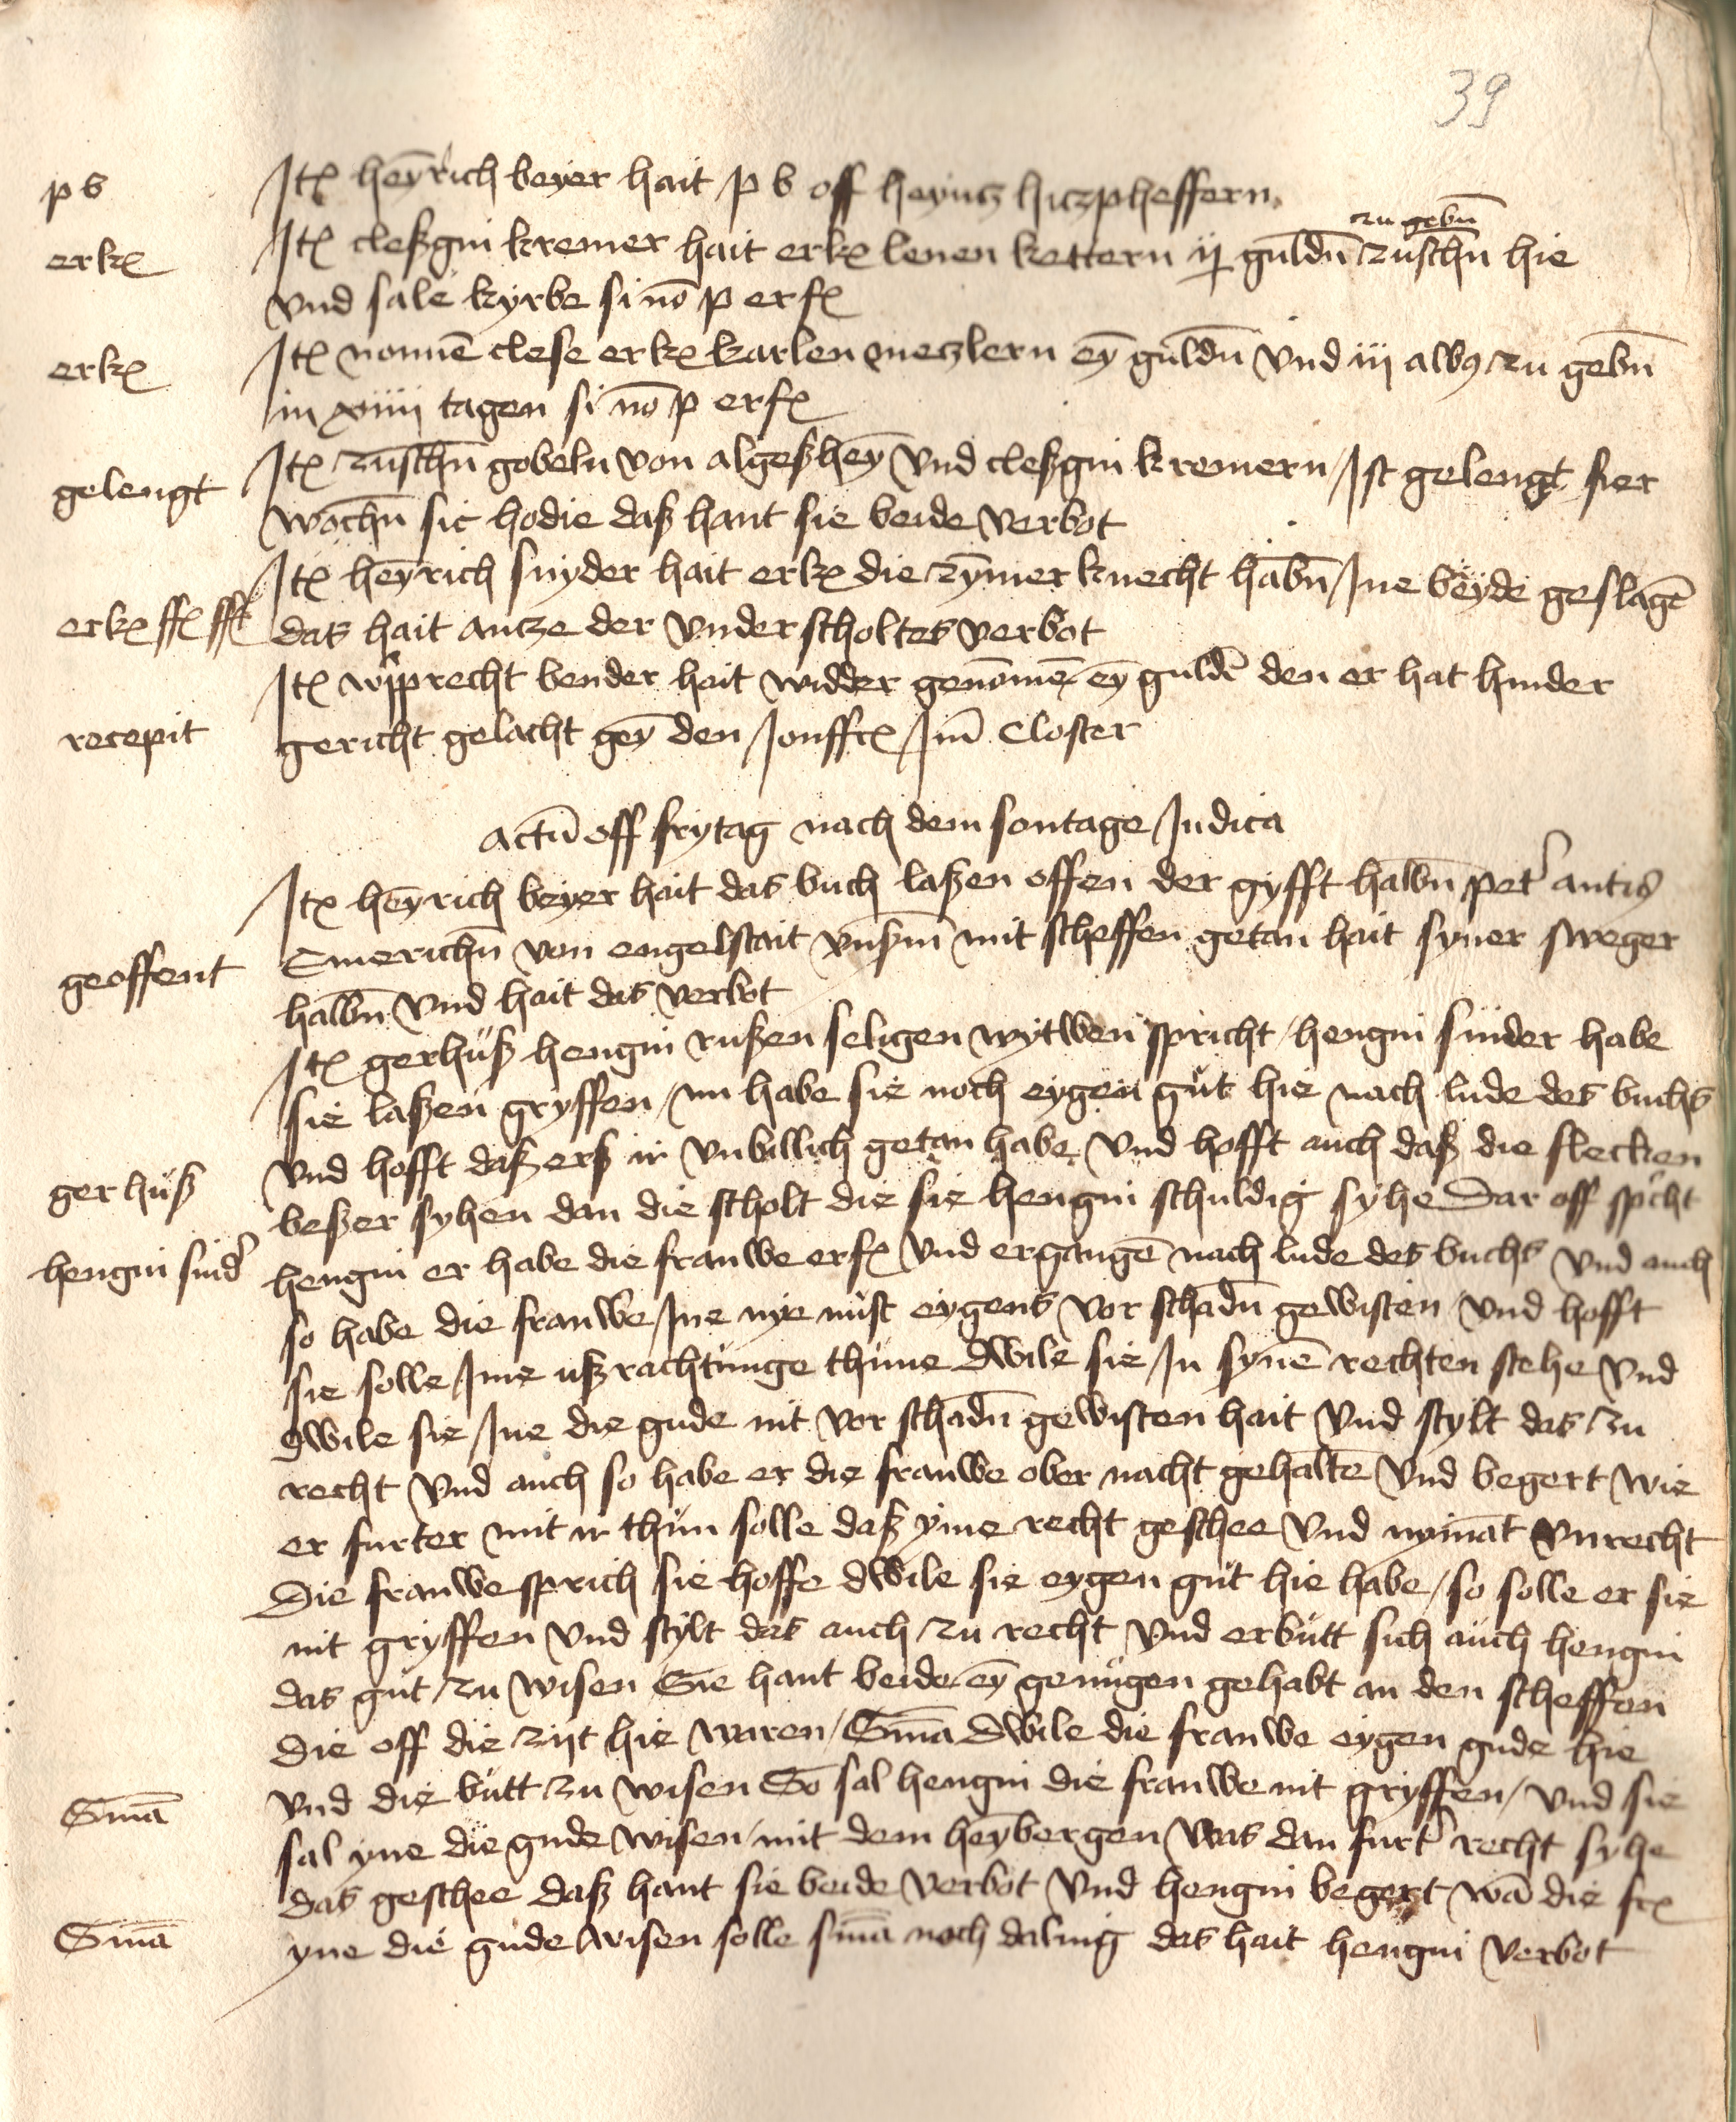 39
p b Itẽ heyrich beyer hait p b off heyntz hiczpheffern
zu gebn̄
erkẽ Itẽ cleßgin kremer hait erkẽ lenen kettern ij guldn̄ zuschn̄ hie
vnd sale kyrbe si nō p erfẽ
erkẽ Itẽ nonnē clese erkẽ karlen metzlern eȳ guldn̄ vnd iij albꝰ zu gebn̄
in xiiii tagen si nō p erfẽ
gelengt Itẽ zuschn̄ gobeln von algeßheȳ vnd cleßgin kremern Ist gelengt fier
wochn̄ sic hodie daß hant sie beide verbot
Itẽ heyrich snyder hait erkẽ die zȳmer knecht habn̄ Ine beyde geslagē
erkẽ ffẽ fft das hait antze der vnder scholtes verbot
Itẽ wipprecht bender hait widder genōmē eȳ guldē den er hat hinder
recepit gericht gelacht geȳ den Jonffrẽ Im̄ Closter
Actū off frytag nach dem sontage Judica
Itẽ heyrich beyer hait das buch laßen offen der gyfft halbn̄ pet' antzꝰ
geoffent Emerichn̄ von engelstait vnsm̄ mit scheffen getan hait syner sweger
halbn̄ vnd hait das verbot
Itẽ gerhuß hengin rußen seligen wytwen spricht / hengin snider habe
sie laßen gryffen / nu habe sie noch eygen gut hie nach lude des buchs
vnd hofft daß erß ir vnbillich getan habe vnd hofft auch daß die flecken
gerhuß beßer syhen dan die scholt die sie hengin schuldig syhe Dar off spͥcht
hengin snid' hengin er habe die frauwe erfẽ vnd ergangē nach lude des buchs vnd auch
so habe die frauwe Ine nye nust eygens vor schadn̄ gewisten vnd hofft
sie solle Ime ußrachtunge thune dwile sie In synē rechten stehe vnd
dwile sie Ine die gude nit vor schadn̄ gewisten hait vnd stylt das zu
recht vnd auch so habe er die frauwe ober nacht gehaltē vnd begert wie
er furter mit ir thun solle daß yme recht geschee vnd nymāt vnrecht
Die frauwe sprich sie hoffe dwile sie eygen gut hie habe / so solle er sie
nit gryffen vnd stylt das auch zu recht vnd erbutt sich auch hengin
das gut zu wisen Sie hant beide eȳ genugen gehabt an den scheffen
die off die zijt hie waren / Sniā Dwile die frauwe eygen gude hie
Sniā vnd die butt zu wisen So sal hengin die frauwe nit gryffen / vnd sie
sal yne die gude wisen / mit dem heȳbergen was dan furt' recht syhe
das geschee daß hant sie beide verbot vnd hengin begert wā die frẽ
Sniā yne die gude wisen solle sniā noch daling das hait hengin verbot